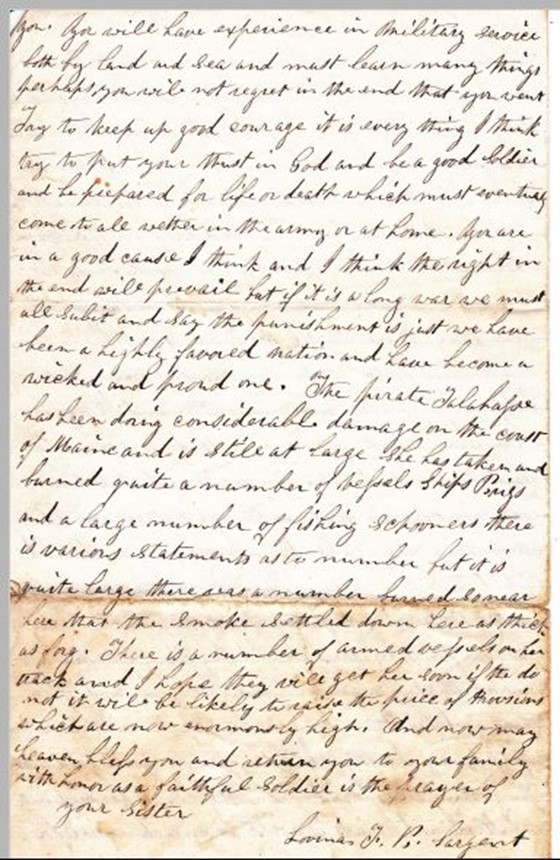 you. You will have experience in Military service
both by land and Sea and must learn many things
perhaps you will not regret in the end that you went
Try to keep up good courage it is every thing I think
try to put your trust in God and be a good Soldier
and be prepared for life or death which must eventualy
come to all wether in the army or at home. You are
in a good cause I think and I think the right in
the end will prevail but if it is a long war we must
all Subit and Say the punishment is just we have
been a highly favored nation and have become a
wicked and proud one. The pirate Talahasse
has been doing considerable damage on the coast
of Maine and is Still at large She has taken and
burned quite a number of vessels Ships Brigs
and a large number of fishing Schooners there
is various Statements as to number but it is
quite large there was a number burned So near
here that the Smoke Settled down here as thick
as fog. There is a number of armed vessels on her
track and I hope they will get her Soon if the do
not it will be likely to raise the price of Provisions
which are now enormously high. And now may
heaven bless you and return you to your family
with honor as a faithful Soldier is the prayer of
your Sister
Sargent